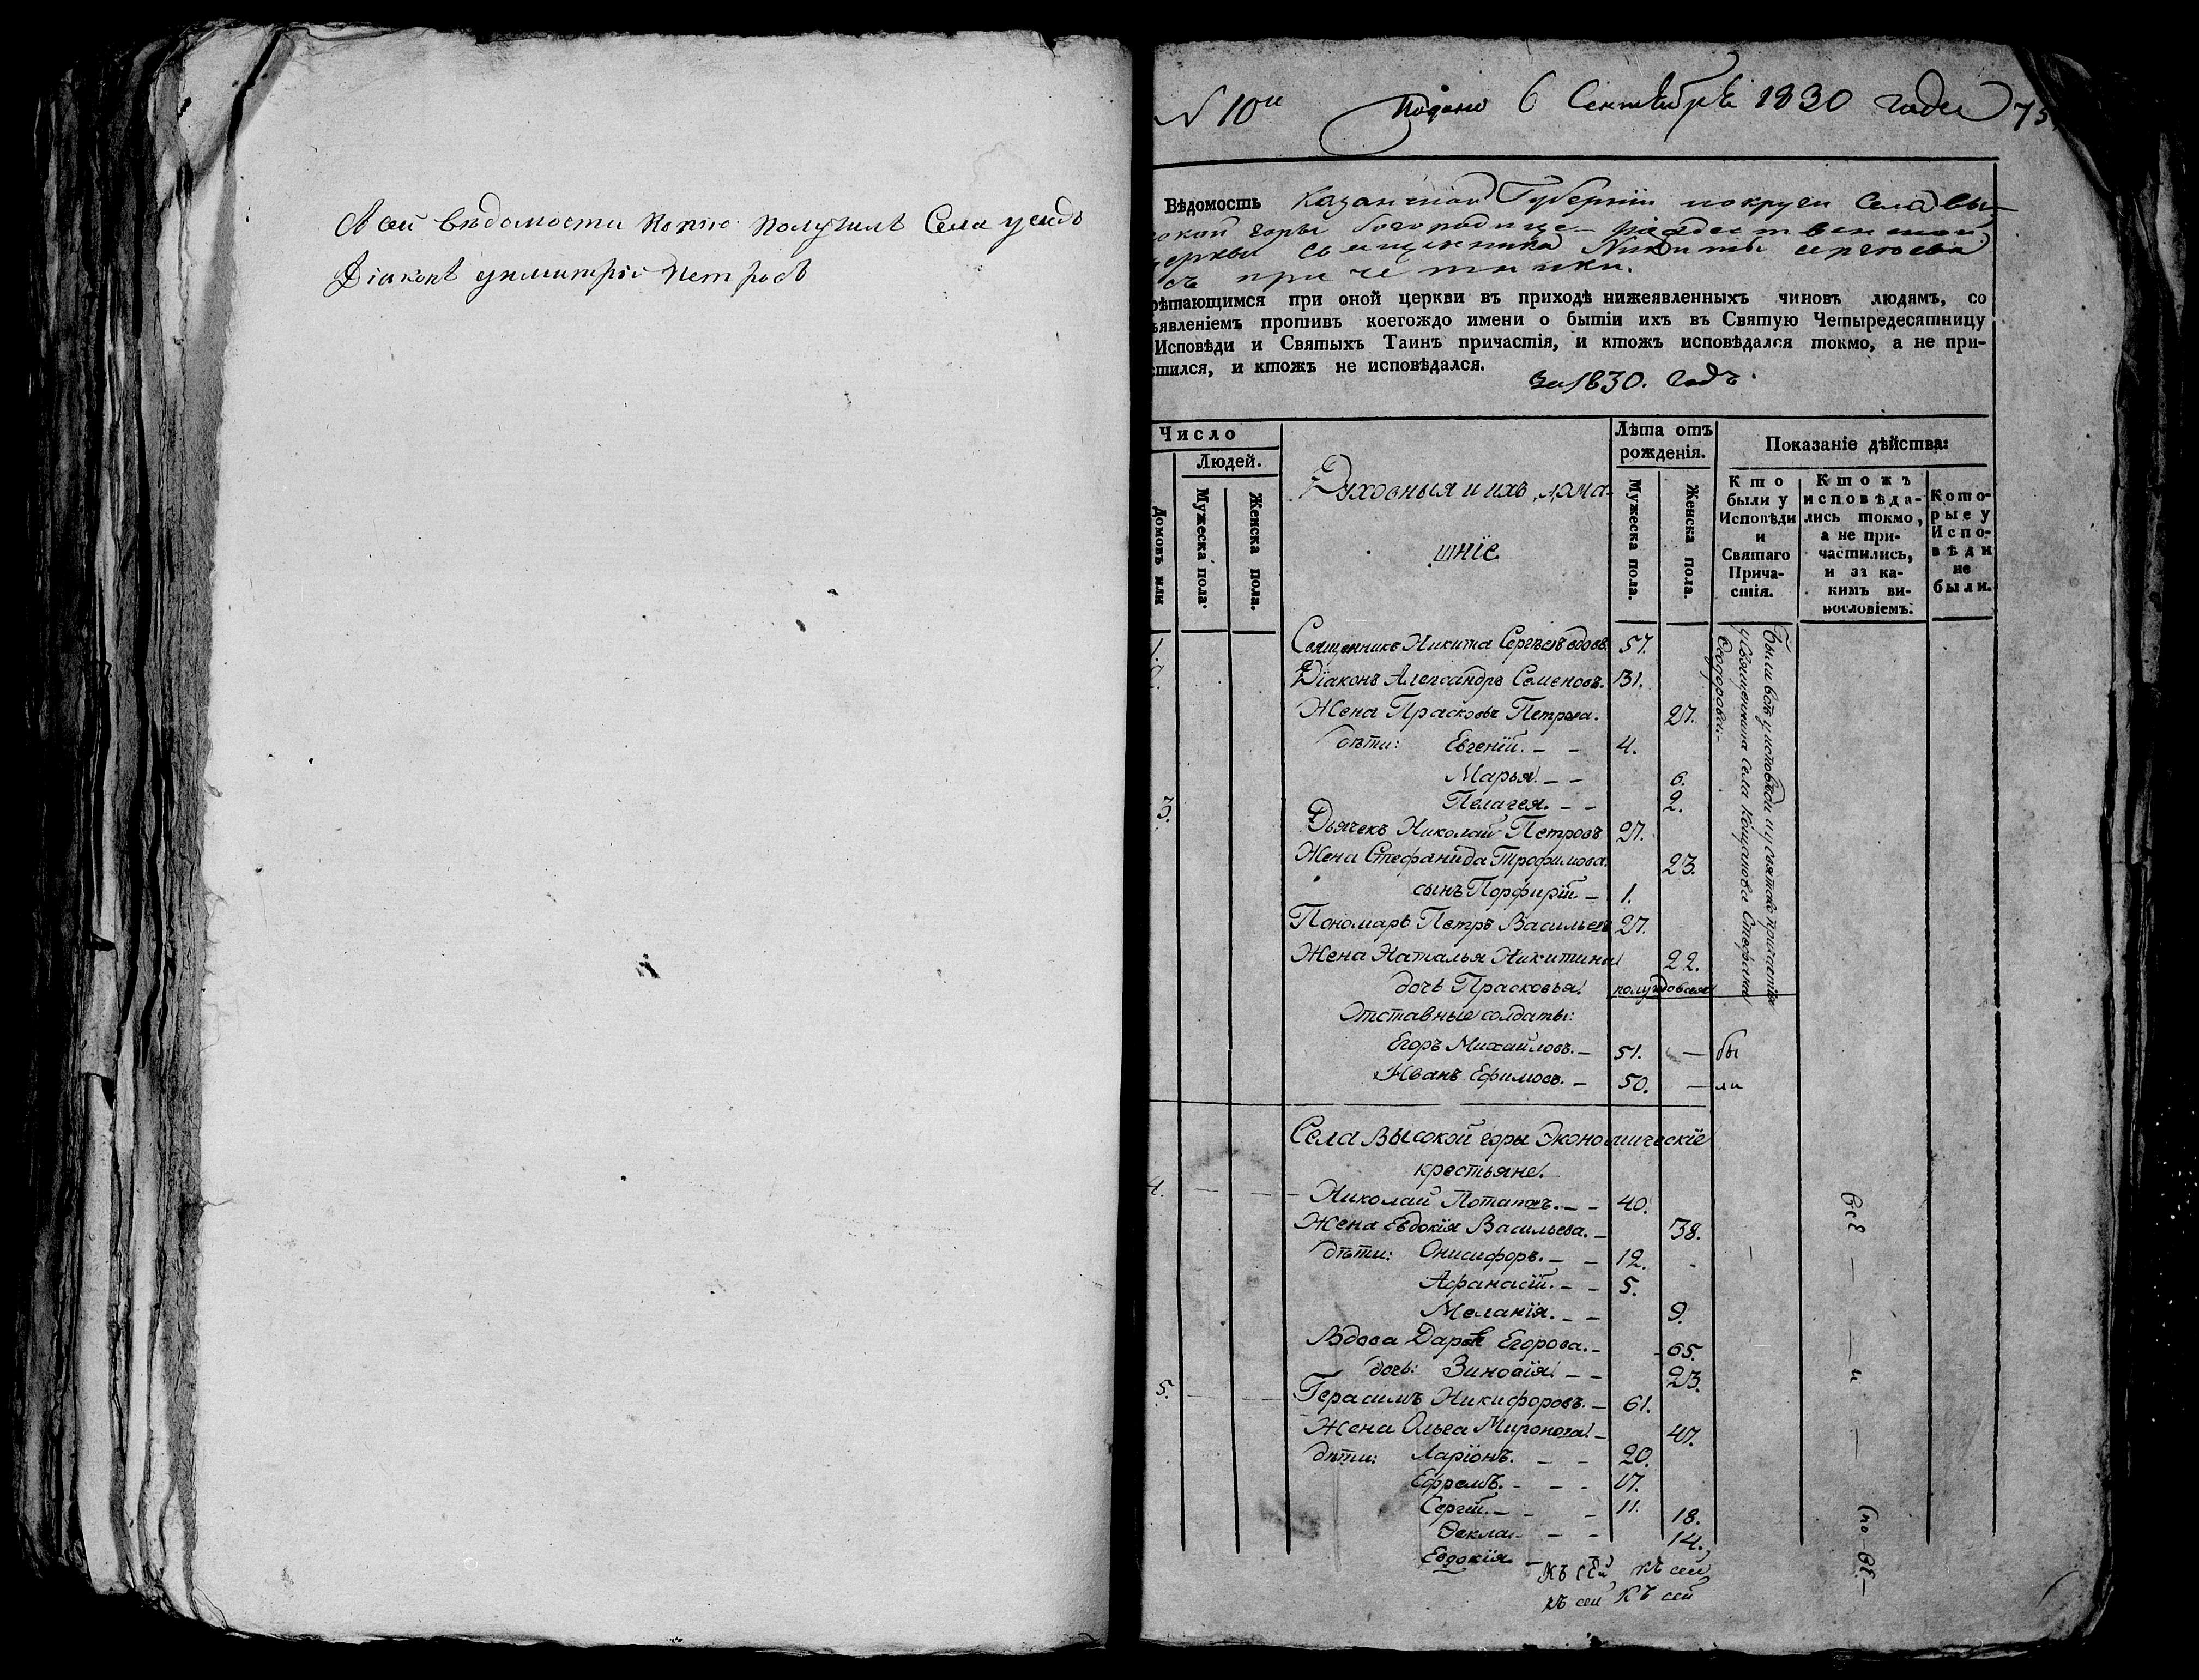 Сей вѣдомости копию получилъ Села
Діаконъ Димитрій Петровъ
N 10й Подано 6 Сентября 1830 года 75
Вѣдомость Казанской Губерніи округи Села Вы-
окой горы богородице-рождественской
еркви священника Никиты сергѣева
съ причетники.
рѣтающимся при оной церкви въ приходѣ нижеявленныхъ чиновъ людямъ, со
ъявленіемъ противъ коегождо имени о бытіи ихъ въ Святую Четыредесятницу
Исповѣди и Святыхъ Таинъ причастія, и ктожъ исповѣдался токмо, а не при-
стился, и ктожъ не исповѣдался.
За 1830. Годъ.
Число
Людей.
Домовъ или
Мужеска пола.
Женска пола.
Духовныя и ихъ дома-
шніе
Лѣта отъ
рожденія.
Мужеска пола.
Женска пола.
Показаніе дѣйства:
Кто
были у
Исповѣди
и
Святаго
Прича-
стія.
Ктожъ
исповѣда-
лись токмо,
а не при-
частились,
и за ка-
кимъ ви-
нословіемъ.
Кото-
рые у
Испо-
вѣди
не
были.
1. Священникъ Никита Сергѣевъ вдовъ. 57.
2. Діаконъ Александръ Семеновъ. 31.
Жена Прасковья Петрова. 27.
дѣти: Евгеній. – – 4.
Марья. – – 6.
Пелагея. – – 2.
3. Дьячекъ Николай Петровъ 27.
Жена Стефанида Трофимова. 23.
сынъ Порфирій. – 1.
Пономарь Петръ Васильевъ 27.
Жена Наталья Никитина 22.
дочь Прасковья. полугодовая
Были у исповѣди и святаго причастія
у Священника села Стефана
Феодорова
Отставные солдаты:
Егоръ Михайловъ. – 51. — бы
Иванъ Ефимовъ. – 50. — ли
Села Высокой горы Экономическіе
крестьяне.
4. — — – Николай Потаповъ. – – 40.
Жена Евдокія Васильева. – 38.
дѣти: Онисифоръ. – – 12.
Афанасій. – – 5.
Меланія. – – 9.
Вдова Дарья Егорова. – 65.
дочь: Зиновія. – – 23.
5. — — Герасимъ Никифоровъ. – 61.
Жена Ольга Миронова. – 47.
дѣти: Ларіонъ. – – 20.
Ефремъ. – – – 17.
Сергій. – – – 11.
Фекла. – – 18.
Евдокія. – 14.
всѣ — — и — (по-вѣ.—
къ сей къ сей
къ сей къ сей